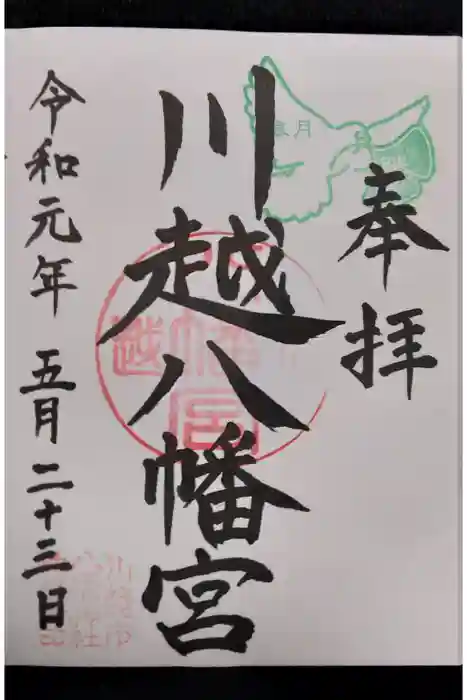 奉拝
川越八幡宮
令和元年 五月二十三日